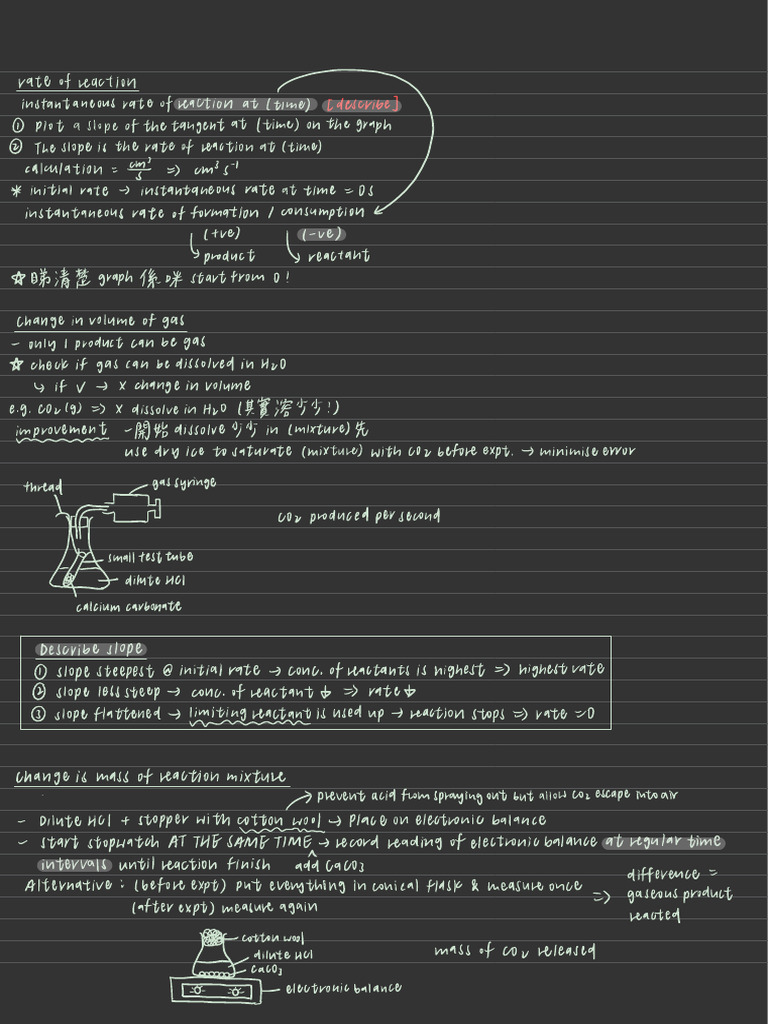 rate of reaction
instantaneous rate of reaction at (time) [describe]
① plot a slope of the tangent at (time) on the graph
② The slope is the rate of reaction at (time)
calculation = cm³/s => cm³ s⁻¹
* initial rate → instantaneous rate at time = 0s
instantaneous rate of formation / consumption
(+ve) (-ve)
↳ product ↳ reactant
☆ 睇清楚 graph 係咪 start from 0!
change in volume of gas
- only 1 product can be gas
☆ check if gas can be dissolved in H₂O
↳ if ✓ → x change in volume
e.g. CO₂(g) => x dissolve in H₂O (其實溶少少!)
improvement - 開始 dissolve 少少 in (mixture) 先
use dry ice to saturate (mixture) with CO₂ before expt. → minimise error
thread
gas syringe
CO₂ produced per second
small test tube
dilute HCl
calcium carbonate
Describe slope
① slope steepest @ initial rate → conc. of reactants is highest => highest rate
② slope less steep → conc. of reactant ↓ => rate ↓
③ slope flattened → limiting reactant is used up → reaction stops => rate = 0
change is mass of reaction mixture
prevent acid from spraying out but allow CO₂ escape into air
- Dilute HCl + stopper with cotton wool → Place on electronic balance
- start stopwatch AT THE SAME TIME → record reading of electronic balance at regular time
intervals until reaction finish add CaCO₃
Alternative : (before expt) put everything in conical flask & measure once
(after expt) measure again
=> difference =
gaseous product
reacted
cotton wool
dilute HCl
CaCO₃
electronic balance
mass of CO₂ released